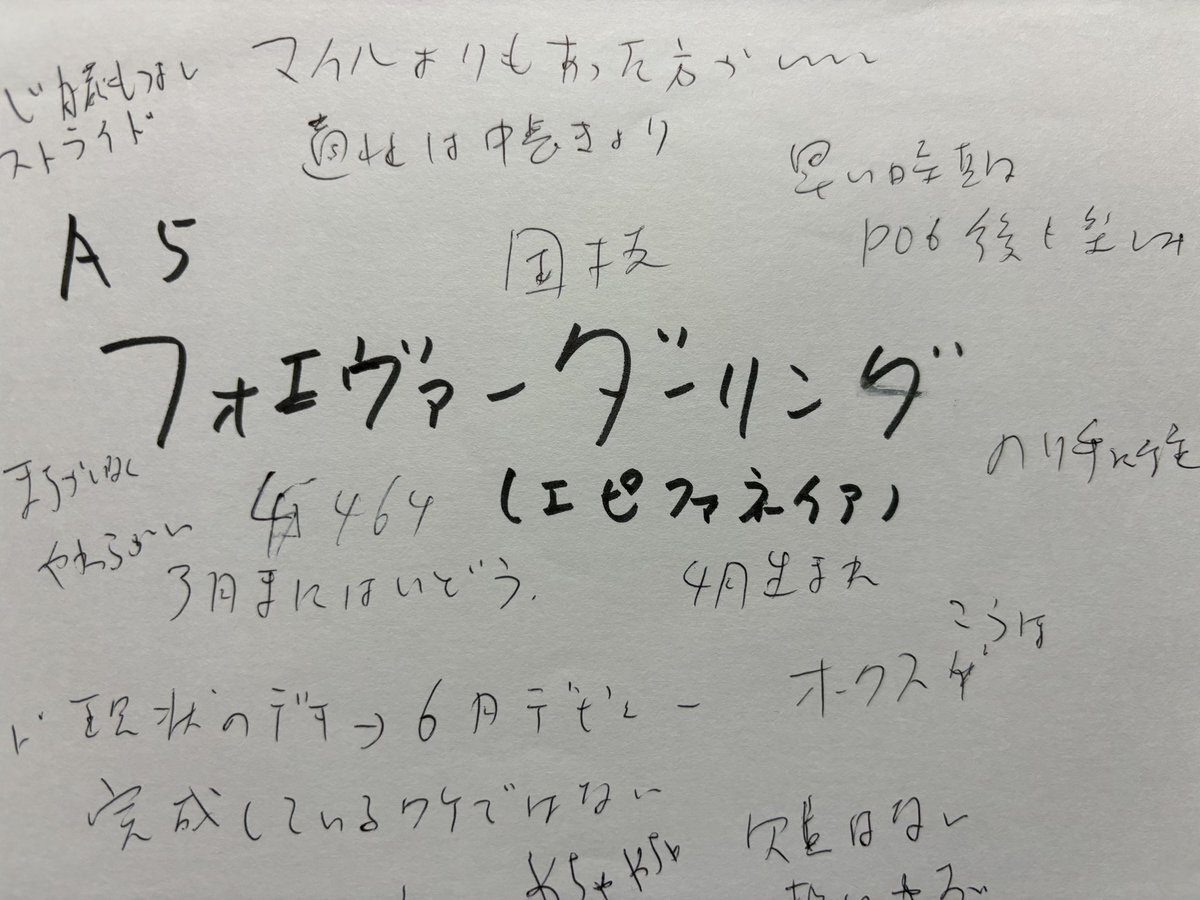 マイルよりもあった方がいい
も
ストライド
適性は中長きより
早い時期は
A5
国枝
POG後も楽しみ
フォエヴァーダーリング
のり手に
まちがいなく
464
(エピファネイア)
やわらかい
3月末にはいどう.
4月生まれ
こうは
オークス
現状のデキ→6月デビュー
完成しているワケではない
欠点はない
めちゃめちゃ